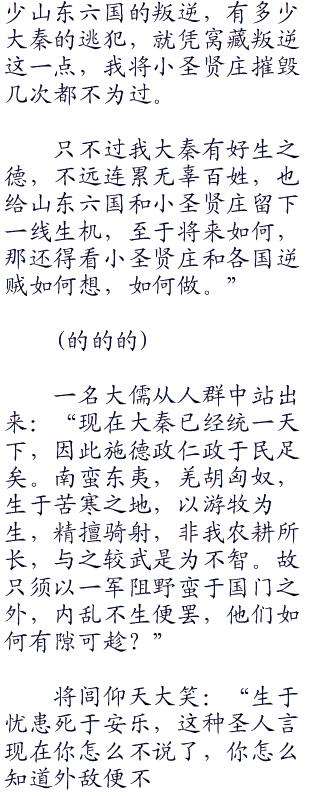 少山东六国的叛逆，有多少
大秦的逃犯，就凭窝藏叛逆
这一点，我将小圣贤庄摧毁
几次都不为过。
只不过我大秦有好生之
德，不远连累无辜百姓，也
给山东六国和小圣贤庄留下
一线生机，至于将来如何，
那还得看小圣贤庄和各国逆
贼如何想，如何做。”
(的的的)
一名大儒从人群中站出
来：“现在大秦已经统一天
下，因此施德政仁政于民足
矣。南蛮东夷，羌胡匈奴，
生于苦寒之地，以游牧为
生，精擅骑射，非我农耕所
长，与之较武是为不智。故
只须以一军阻野蛮于国门之
外，内乱不生便罢，他们如
何有隙可趁？”
将闾仰天大笑：“生于
忧患死于安乐，这种圣人言
现在你怎么不说了，你怎么
知道外敌便不